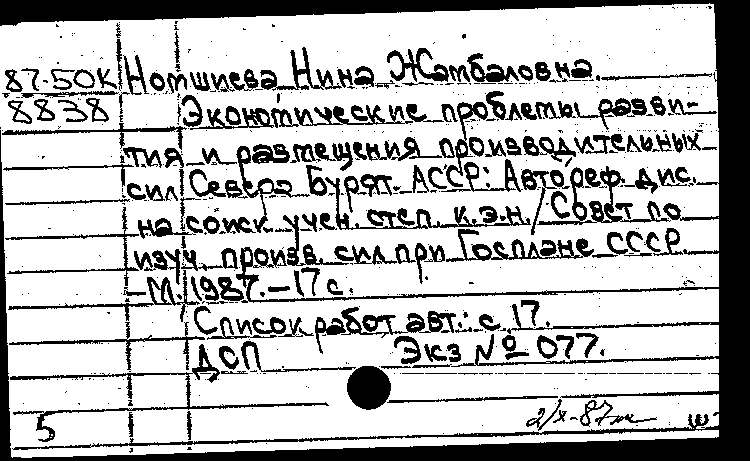 87-50К Номшиева Нина Жамбаловна.
8838 Экономические проблемы разви-
тия и размещения производительных
сил Севера Бурят. АССР: Автореф. дис.
на соиск. учен. степ. к.э.н./Совет по
изуч. произв. сил при Госплане СССР.
-М. 1987.-17с.
Список работ авт.: с.17.
ДСП Экз № 077.
5